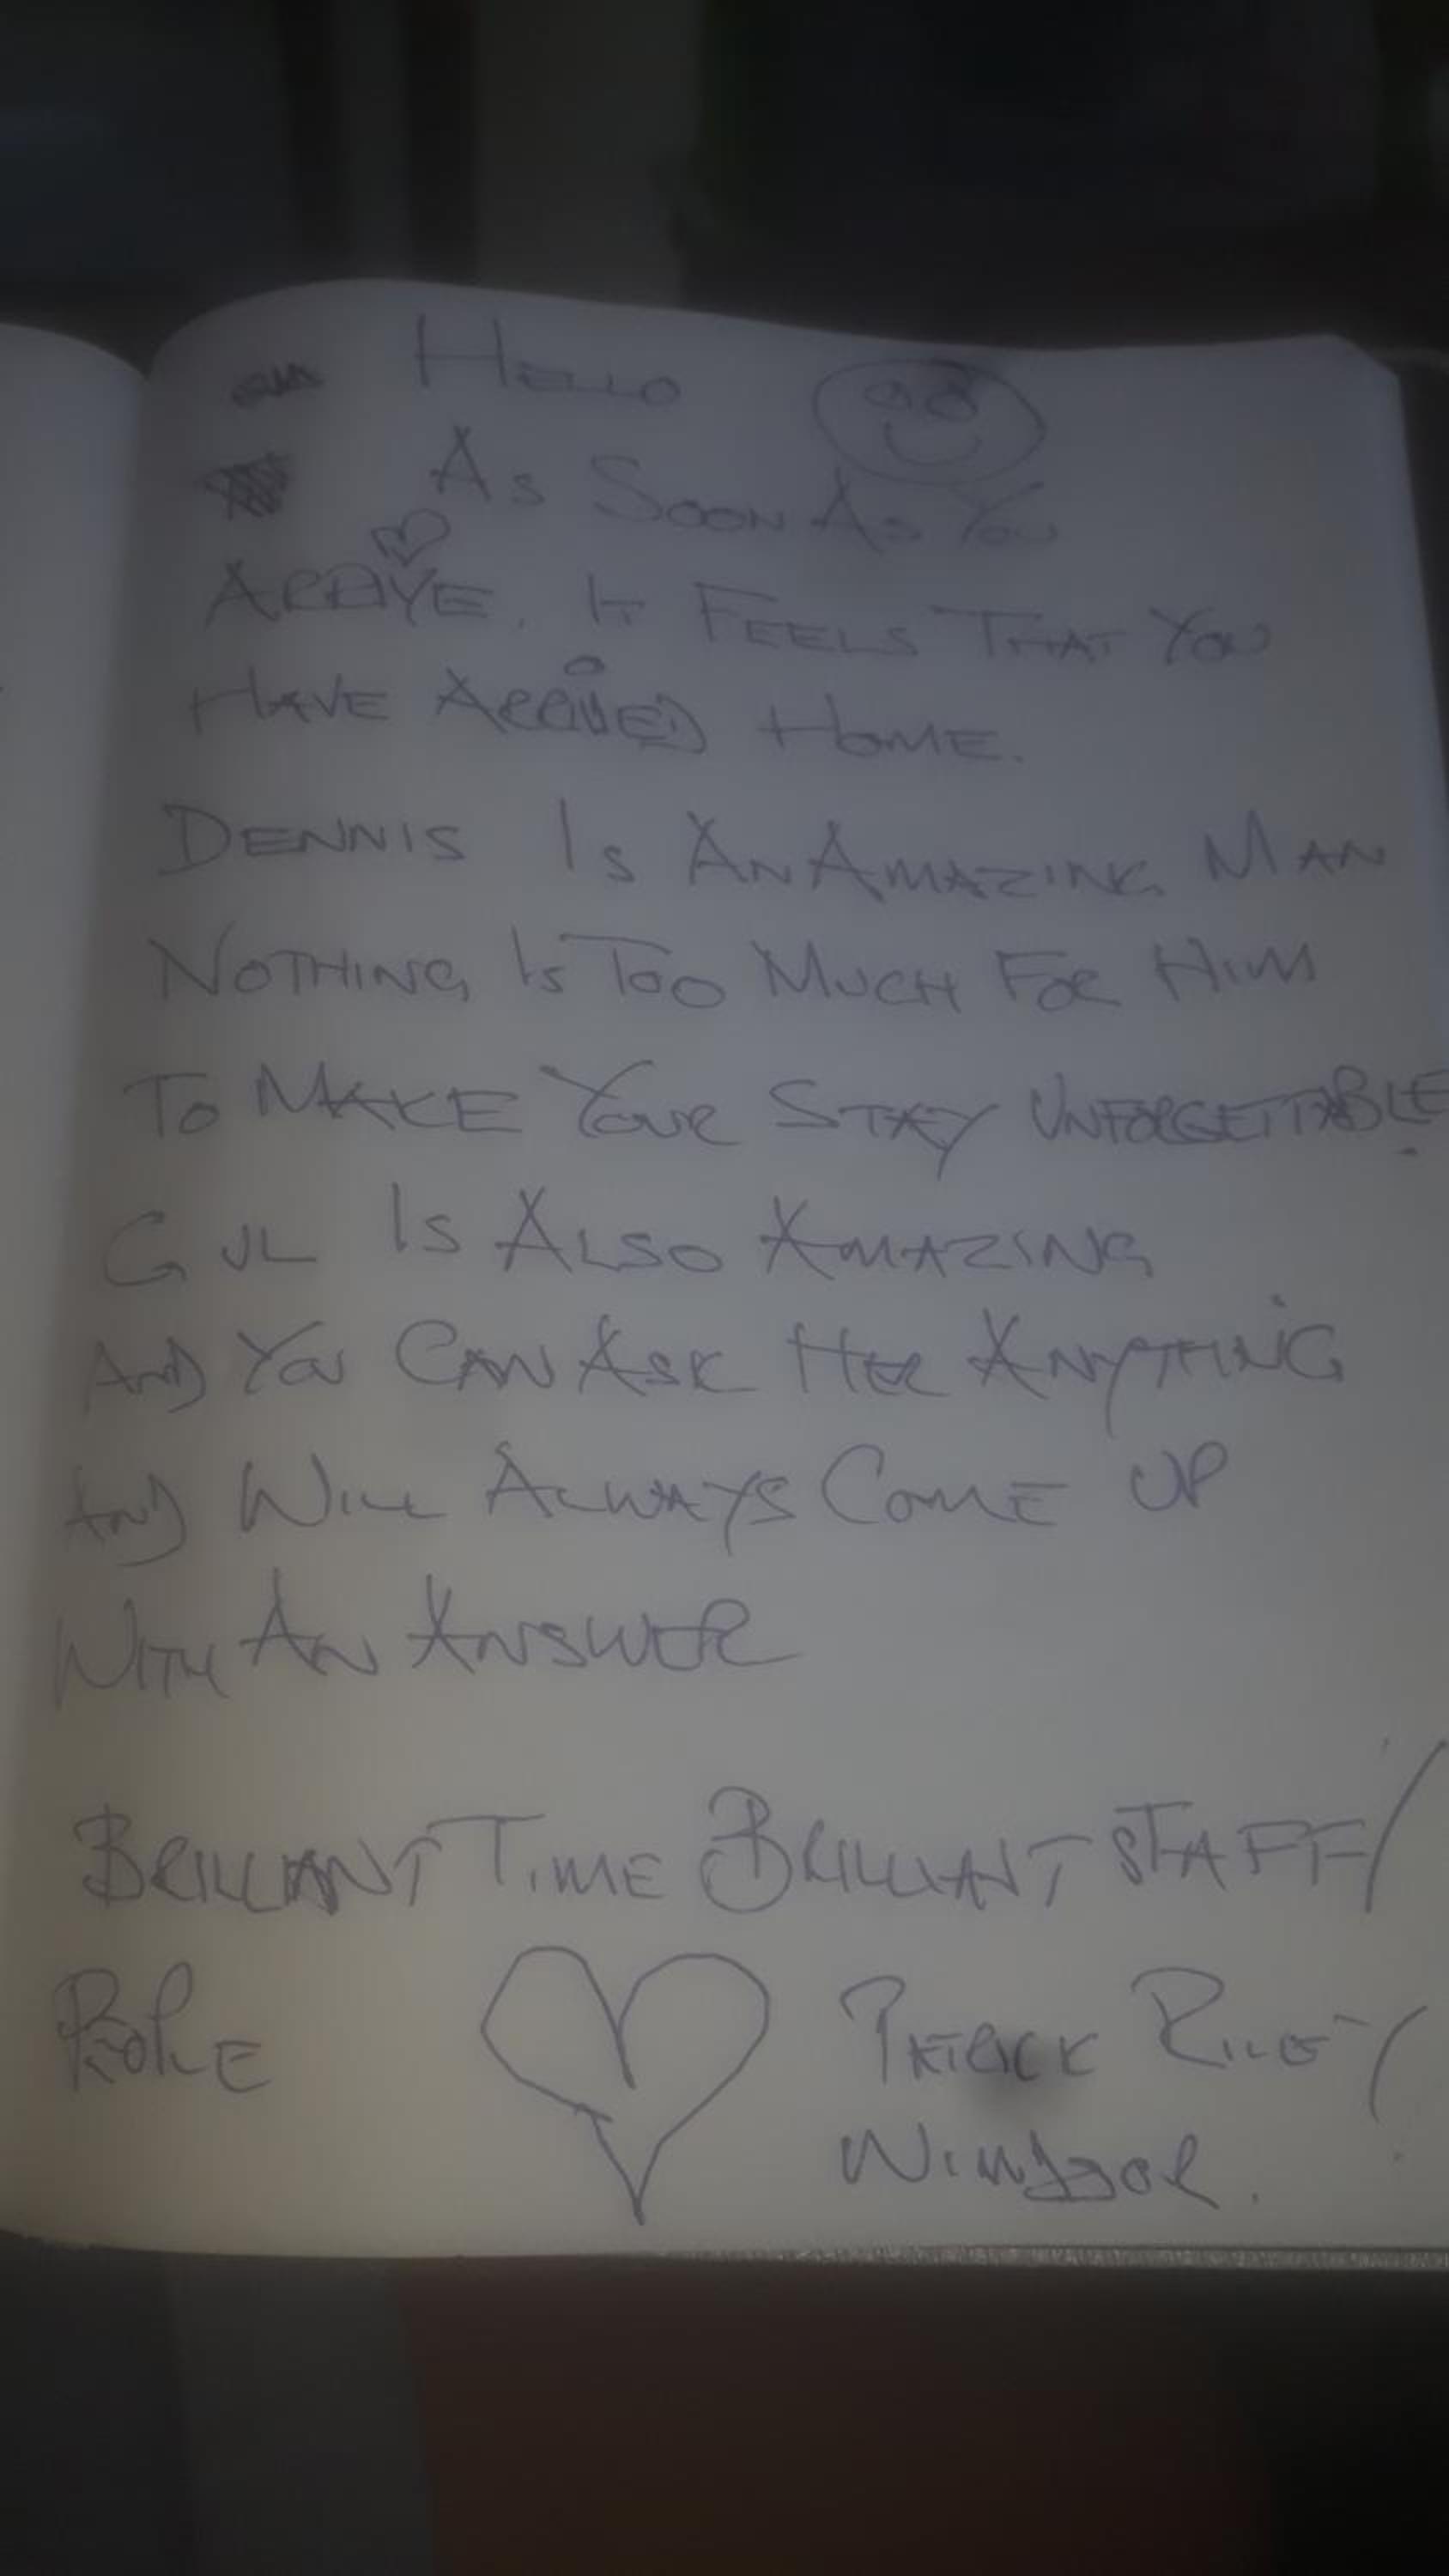 HELLO
AS SOON AS YOU
ARRIVE. IT FEELS THAT YOU
HAVE ARRIVED HOME.
DENNIS IS AN AMAZING MAN
NOTHING IS TOO MUCH FOR HIM
TO MAKE YOUR STAY UNFORGETTABLE.
GUL IS ALSO AMAZING
AND YOU CAN ASK HER ANYTHING
AND WILL ALWAYS COME UP
WITH AN ANSWER
BRILLIANT TIME BRILLIANT STAFF/
PEOPLE
PATRICK RILEY
WINDSOR.